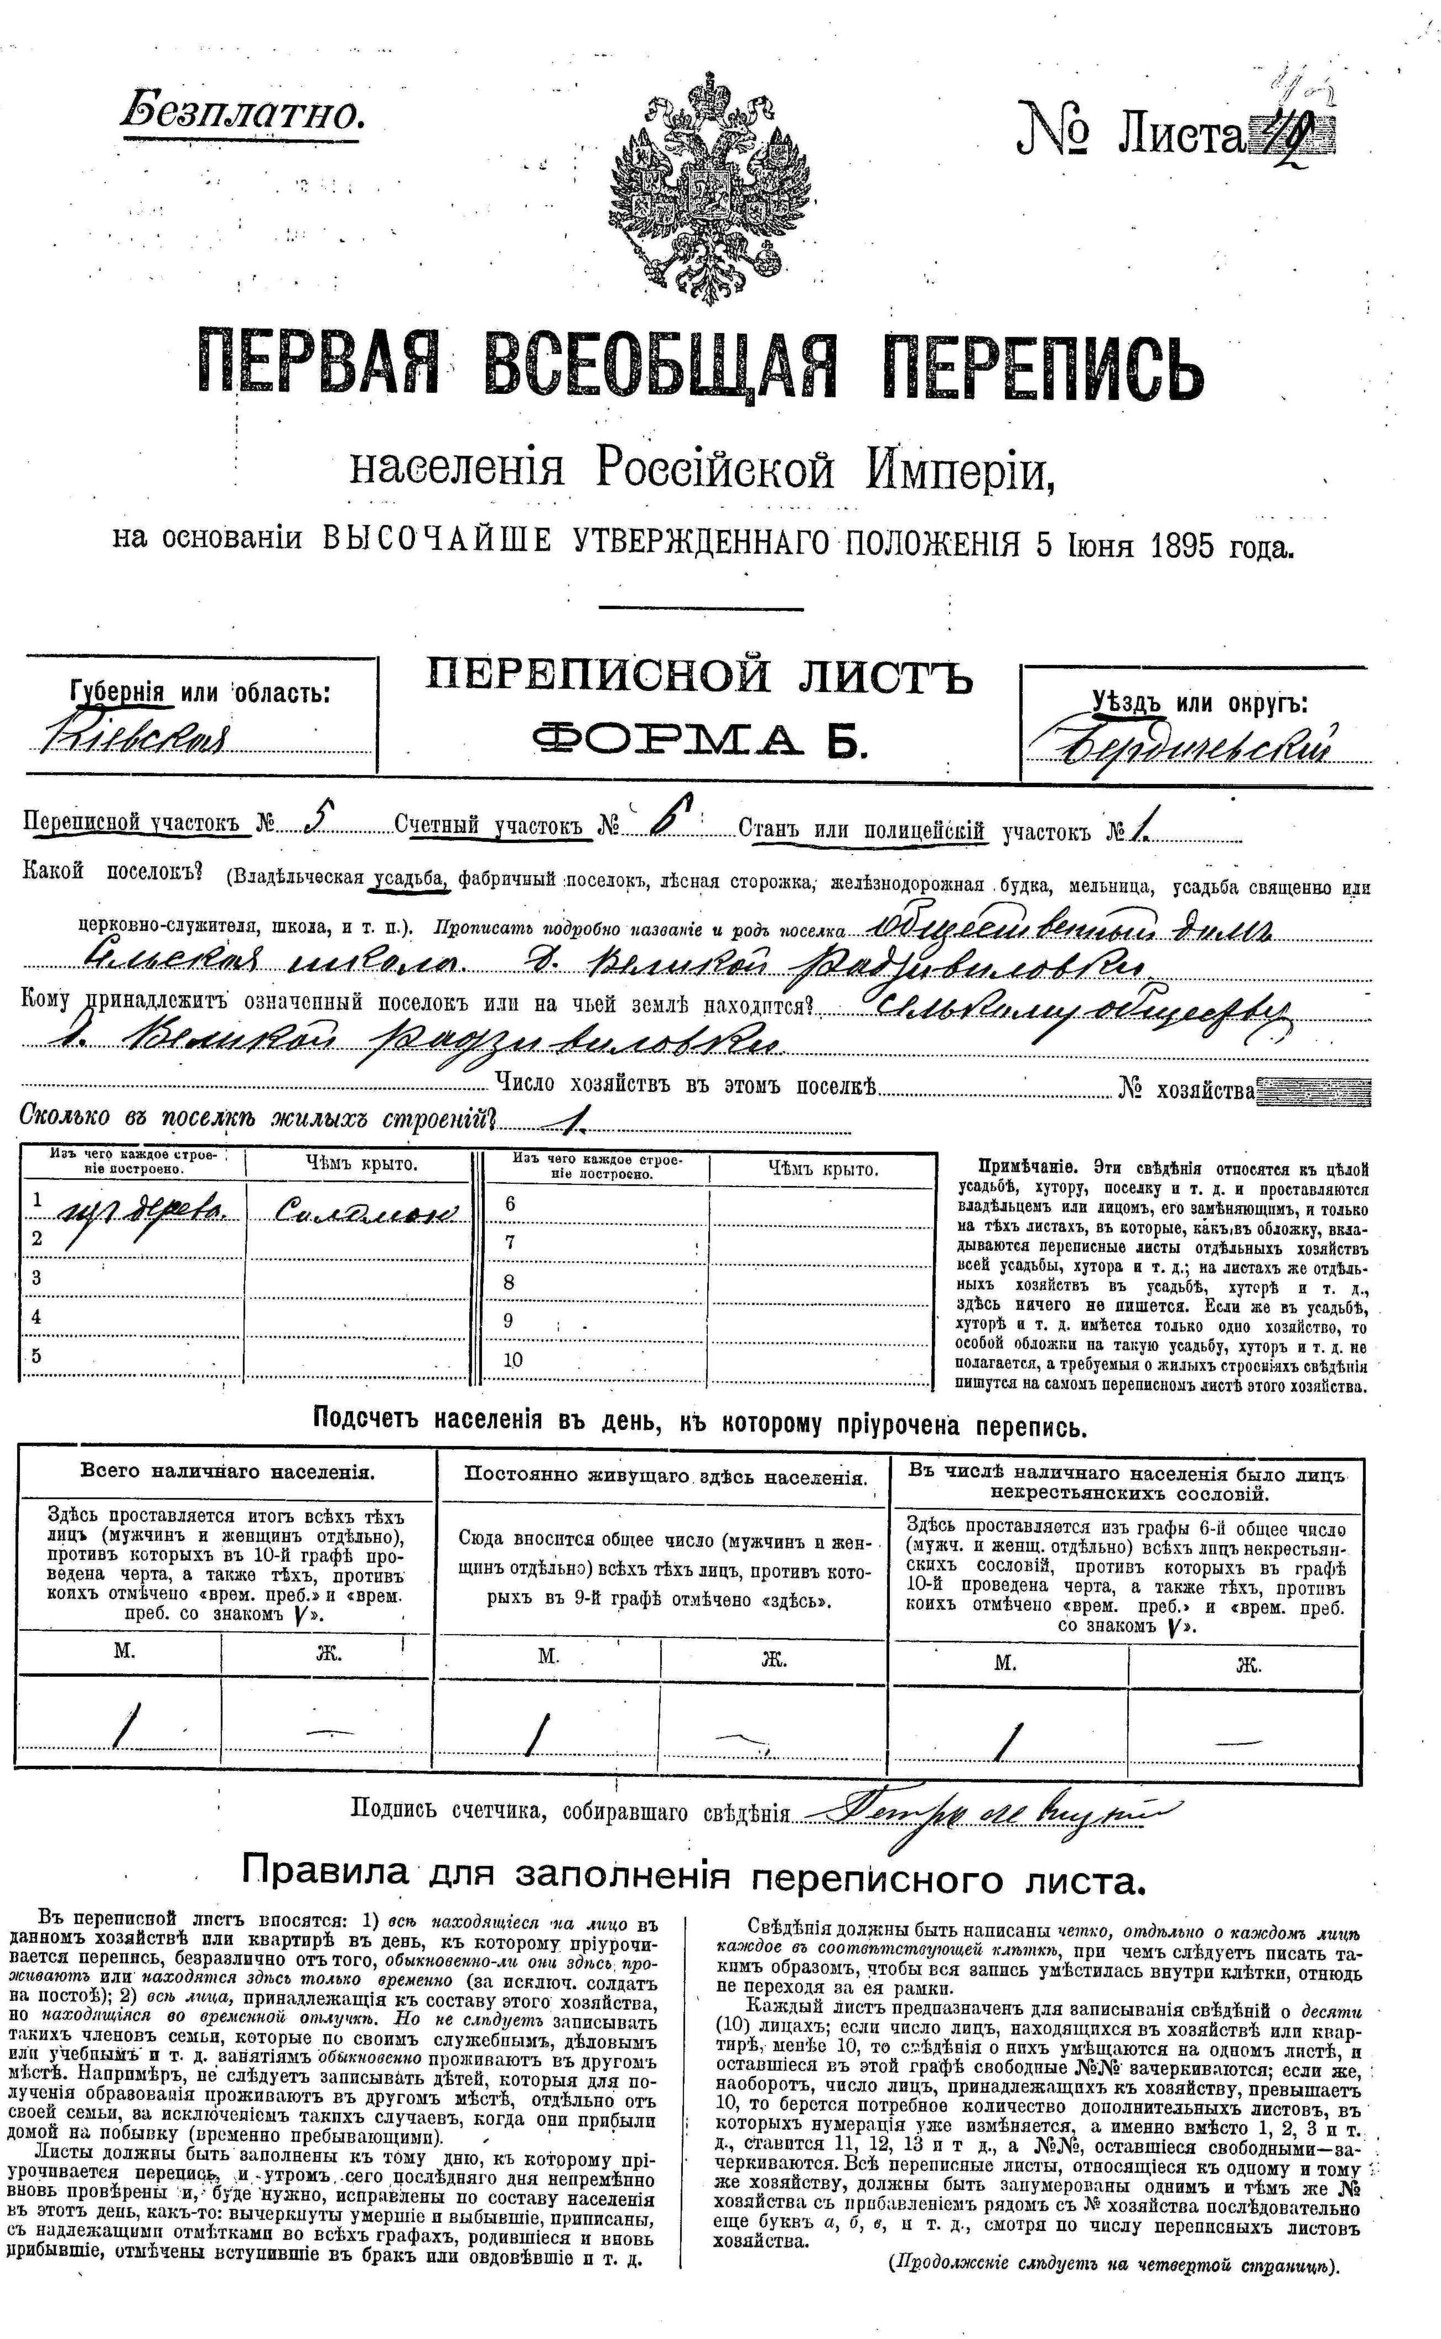 Безплатно.
№ Листа 42
ПЕРВАЯ ВСЕОБЩАЯ ПЕРЕПИСЬ
населенія Россійской Имперіи,
на основаніи ВЫСОЧАЙШЕ УТВЕРЖДЕННАГО ПОЛОЖЕНІЯ 5 Іюня 1895 года.
Губернія или область:
Кіевская
ПЕРЕПИСНОЙ ЛИСТЪ
ФОРМА Б.
Уѣздъ или округъ:
Бердичевскій
Переписной участокъ № 5 Счетный участокъ № 6 Станъ или полицейскій участокъ № 1.
Какой поселокъ? (Владѣльческая усадьба, фабричный поселокъ, лѣсная сторожка, желѣзнодорожная будка, мельница, усадьба священно или
церковно-служителя, школа, и т. п.). Прописать подробно названіе и родъ поселка общественный домъ
Сельская школа. д. Великой Радзивиловки
Кому принадлежитъ означенный поселокъ или на чьей землѣ находится? селькому обществу
д. Великой Радзивиловки
Число хозяйствъ въ этомъ поселкѣ № хозяйства
Сколько въ поселкѣ жилыхъ строеній? 1.
Изъ чего каждое строе-
ніе построено.
Чѣмъ крыто.
Изъ чего каждое строе-
ніе построено.
Чѣмъ крыто.
1 изъ дерева. Соломою 6
2 7
3 8
4 9
5 10
Примѣчаніе. Эти свѣдѣнія относятся къ цѣлой
усадьбѣ, хутору, поселку и т. д. и проставляются
владѣльцемъ или лицомъ, его замѣняющимъ, и только
на тѣхъ листахъ, въ которые, какъ въ обложку, вкла-
дываются переписные листы отдѣльныхъ хозяйствъ
всей усадьбы, хутора и т. д.; на листахъ же отдѣль-
ныхъ хозяйствъ въ усадьбѣ, хуторѣ и т. д.,
здѣсь ничего не пишется. Если же въ усадьбѣ,
хуторѣ и т. д. имѣется только одно хозяйство, то
особой обложки на такую усадьбу, хуторъ и т. д. не
полагается, а требуемыя о жилыхъ строеніяхъ свѣдѣнія
пишутся на самомъ переписномъ листѣ этого хозяйства.
Подсчетъ населенія въ день, къ которому пріурочена перепись.
Всего наличнаго населенія.
Здѣсь проставляется итогъ всѣхъ тѣхъ
лицъ (мужчинъ и женщинъ отдѣльно),
противъ которыхъ въ 10-й графѣ про-
ведена черта, а также тѣхъ, противъ
коихъ отмѣчено «врем. преб.» и «врем.
преб. со знакомъ V».
М. Ж.
1 —
Постоянно живущаго здѣсь населенія.
Сюда вносится общее число (мужчинъ и жен-
щинъ отдѣльно) всѣхъ тѣхъ лицъ, противъ кото-
рыхъ въ 9-й графѣ отмѣчено «здѣсь».
М. Ж.
1 —
Въ числѣ наличнаго населенія было лицъ
некрестьянскихъ сословій.
Здѣсь проставляется изъ графы 6-й общее число
(мужч. и женщ. отдѣльно) всѣхъ лицъ некрестьян-
скихъ сословій, противъ которыхъ въ графѣ
10-й проведена черта, а также тѣхъ, противъ
коихъ отмѣчено «врем. преб.» и «врем. преб.
со знакомъ V».
М. Ж.
1 —
Подпись счетчика, собиравшаго свѣдѣнія
Правила для заполненія переписного листа.
Въ переписной листъ вносятся: 1) всѣ находящіеся на лицо въ
данномъ хозяйствѣ или квартирѣ въ день, къ которому пріурочи-
вается перепись, безразлично отъ того, обыкновенно-ли они здѣсь про-
живаютъ или находятся здѣсь только временно (за исключ. солдатъ
на постоѣ); 2) всѣ лица, принадлежащія къ составу этого хозяйства,
но находящіяся во временной отлучкѣ. Но не слѣдуетъ записывать
такихъ членовъ семьи, которые по своимъ служебнымъ, дѣловымъ
или учебнымъ и т. д. занятіямъ обыкновенно проживаютъ въ другомъ
мѣстѣ. Напримѣръ, не слѣдуетъ записывать дѣтей, которыя для по-
лученія образованія проживаютъ въ другомъ мѣстѣ, отдѣльно отъ
своей семьи, за исключеніемъ такихъ случаевъ, когда они прибыли
домой на побывку (временно пребывающими).
Листы должны быть заполнены къ тому дню, къ которому прі-
урочивается перепись, и утромъ сего послѣдняго дня непремѣнно
вновь провѣрены и, буде нужно, исправлены по составу населенія
въ этотъ день, какъ-то: вычеркнуты умершіе и выбывшіе, приписаны,
съ надлежащими отмѣтками во всѣхъ графахъ, родившіеся и вновь
прибывшіе, отмѣчены вступившіе въ бракъ или овдовѣвшіе и т. д.
Свѣдѣнія должны быть написаны четко, отдѣльно о каждомъ лицѣ
каждое въ соотвѣтствующей клѣткѣ, при чемъ слѣдуетъ писать та-
кимъ образомъ, чтобы вся запись умѣстилась внутри клѣтки, отнюдь
не переходя за ея рамки.
Каждый листъ предназначенъ для записыванія свѣдѣній о десяти
(10) лицахъ; если число лицъ, находящихся въ хозяйствѣ или квар-
тирѣ, менѣе 10, то свѣдѣнія о нихъ умѣщаются на одномъ листѣ, и
оставшіеся въ этой графѣ свободные №№ зачеркиваются; если же,
наоборотъ, число лицъ, принадлежащихъ къ хозяйству, превышаетъ
10, то берется потребное количество дополнительныхъ листовъ, въ
которыхъ нумерація уже измѣняется, а именно вмѣсто 1, 2, 3 и т.
д., ставится 11, 12, 13 и т д., а №№, оставшіеся свободными—за-
черкиваются. Всѣ переписные листы, относящіеся къ одному и тому
же хозяйству, должны быть занумерованы однимъ и тѣмъ же №
хозяйства съ прибавленіемъ рядомъ съ № хозяйства послѣдовательно
еще буквъ а, б, в, и т. д., смотря по числу переписныхъ листовъ
хозяйства.
(Продолженіе слѣдуетъ на четвертой страницѣ).